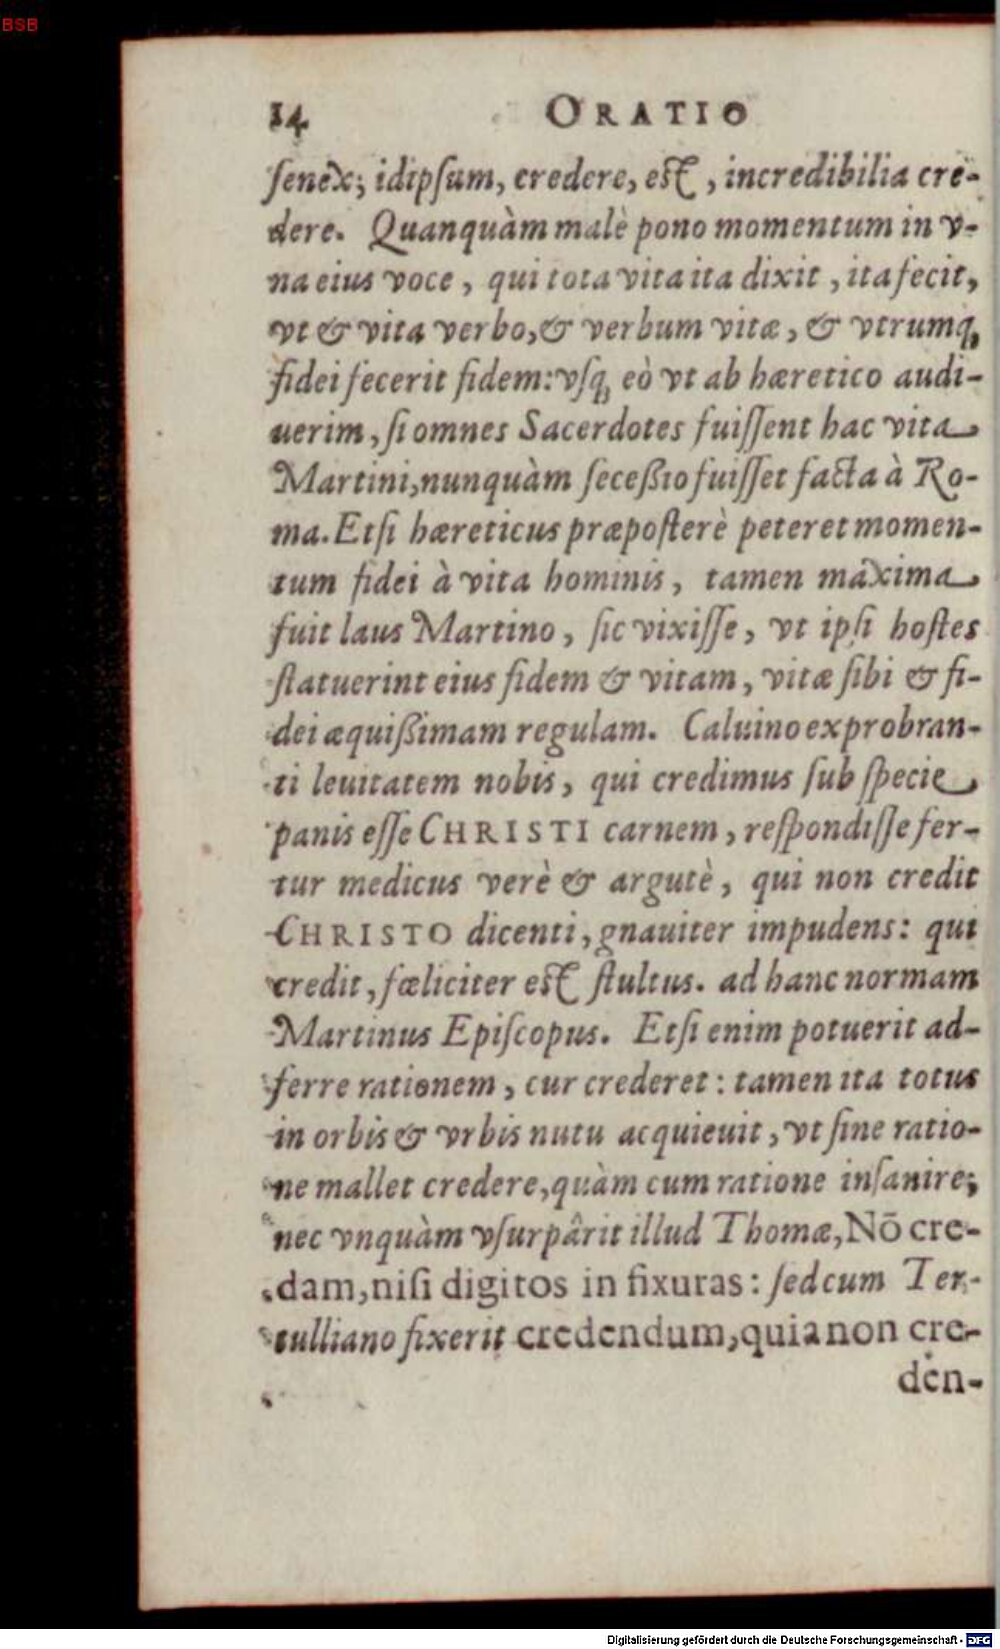 BSB
14 ORATIO
ſenex; idipſum, credere, eſt, incredibilia cre-
dere. Quanquàm malè pono momentum in v-
na eius voce, qui tota vita ita dixit, ita fecit,
vt & vita verbo, & verbum vitæ, & vtrumq;
fidei fecerit fidem: vſq; eò vt ab hæretico audi-
uerim, ſi omnes Sacerdotes fuiſſent hac vita
Martini, nunquàm ſeceßio fuiſſet facta à Ro-
ma. Etſi hæreticus præpoſterè peteret momen-
tum fidei à vita hominis, tamen maxima
fuit laus Martino, ſic vixiſſe, vt ipſi hoſtes
ſtatuerint eius fidem & vitam, vitæ ſibi & fi-
dei æquißimam regulam. Caluino exprobran-
ti leuitatem nobis, qui credimus ſub ſpecie
panis eſſe CHRISTI carnem, reſpondiſſe fer-
tur medicus verè & argutè, qui non credit
CHRISTO dicenti, gnauiter impudens: qui
credit, fœliciter eſt ſtultus. ad hanc normam
Martinus Epiſcopus. Etſi enim potuerit ad-
ferre rationem, cur crederet: tamen ita totus
in orbis & vrbis nutu acquieuit, vt ſine ratio-
ne mallet credere, quàm cum ratione inſanire;
nec vnquàm vſurpârit illud Thomæ, Nō cre-
dam, niſi digitos in fixuras: ſed cum Ter-
tulliano fixerit credendum, quia non cre-
den-
Digitalisierung gefördert durch die Deutsche Forschungsgemeinschaft - DFG